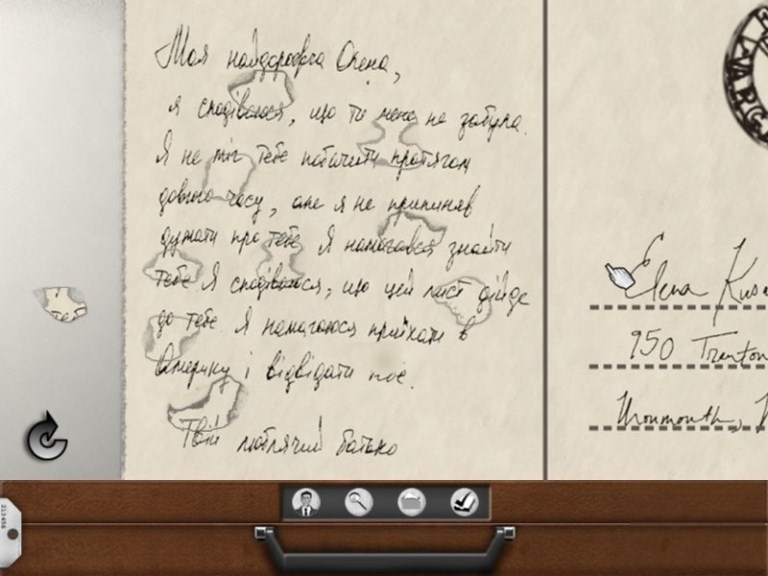 Моя найдорожча Олена,
я сподіваюся, що ти мене не забула.
Я не міг тебе побачити протягом
довгого часу, але я не припиняв
думати про тебе Я намагався знайти
тебе Я сподіваюся, що цей лист дійде
до тебе Я намагаюся приїхати в
Америку і відвідати
Твій люблячий батько
Elena
950 Trenton
Monmouth,